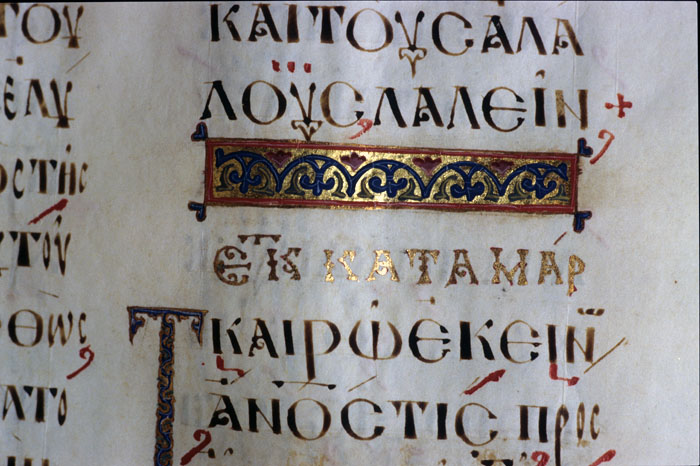 ΤΟΥ
ἘΛΥ
ΟϹ ΤῆϹ
ΥΤΟῦ
ΡΘΩϹ
ΑΤΟ
ΚΑΙ ΤΟΥϹ ΑΛΑ
ΛΟΫϹ ΛΑΛΕΙΝ +
ΕΚ Τ ΚΑΤΑ ΜΑΡ
Τ ΚΑΙΡῶ ἘΚΕΙΝ
ΑΝΟϹ ΤΙϹ ΠΡΟϹ